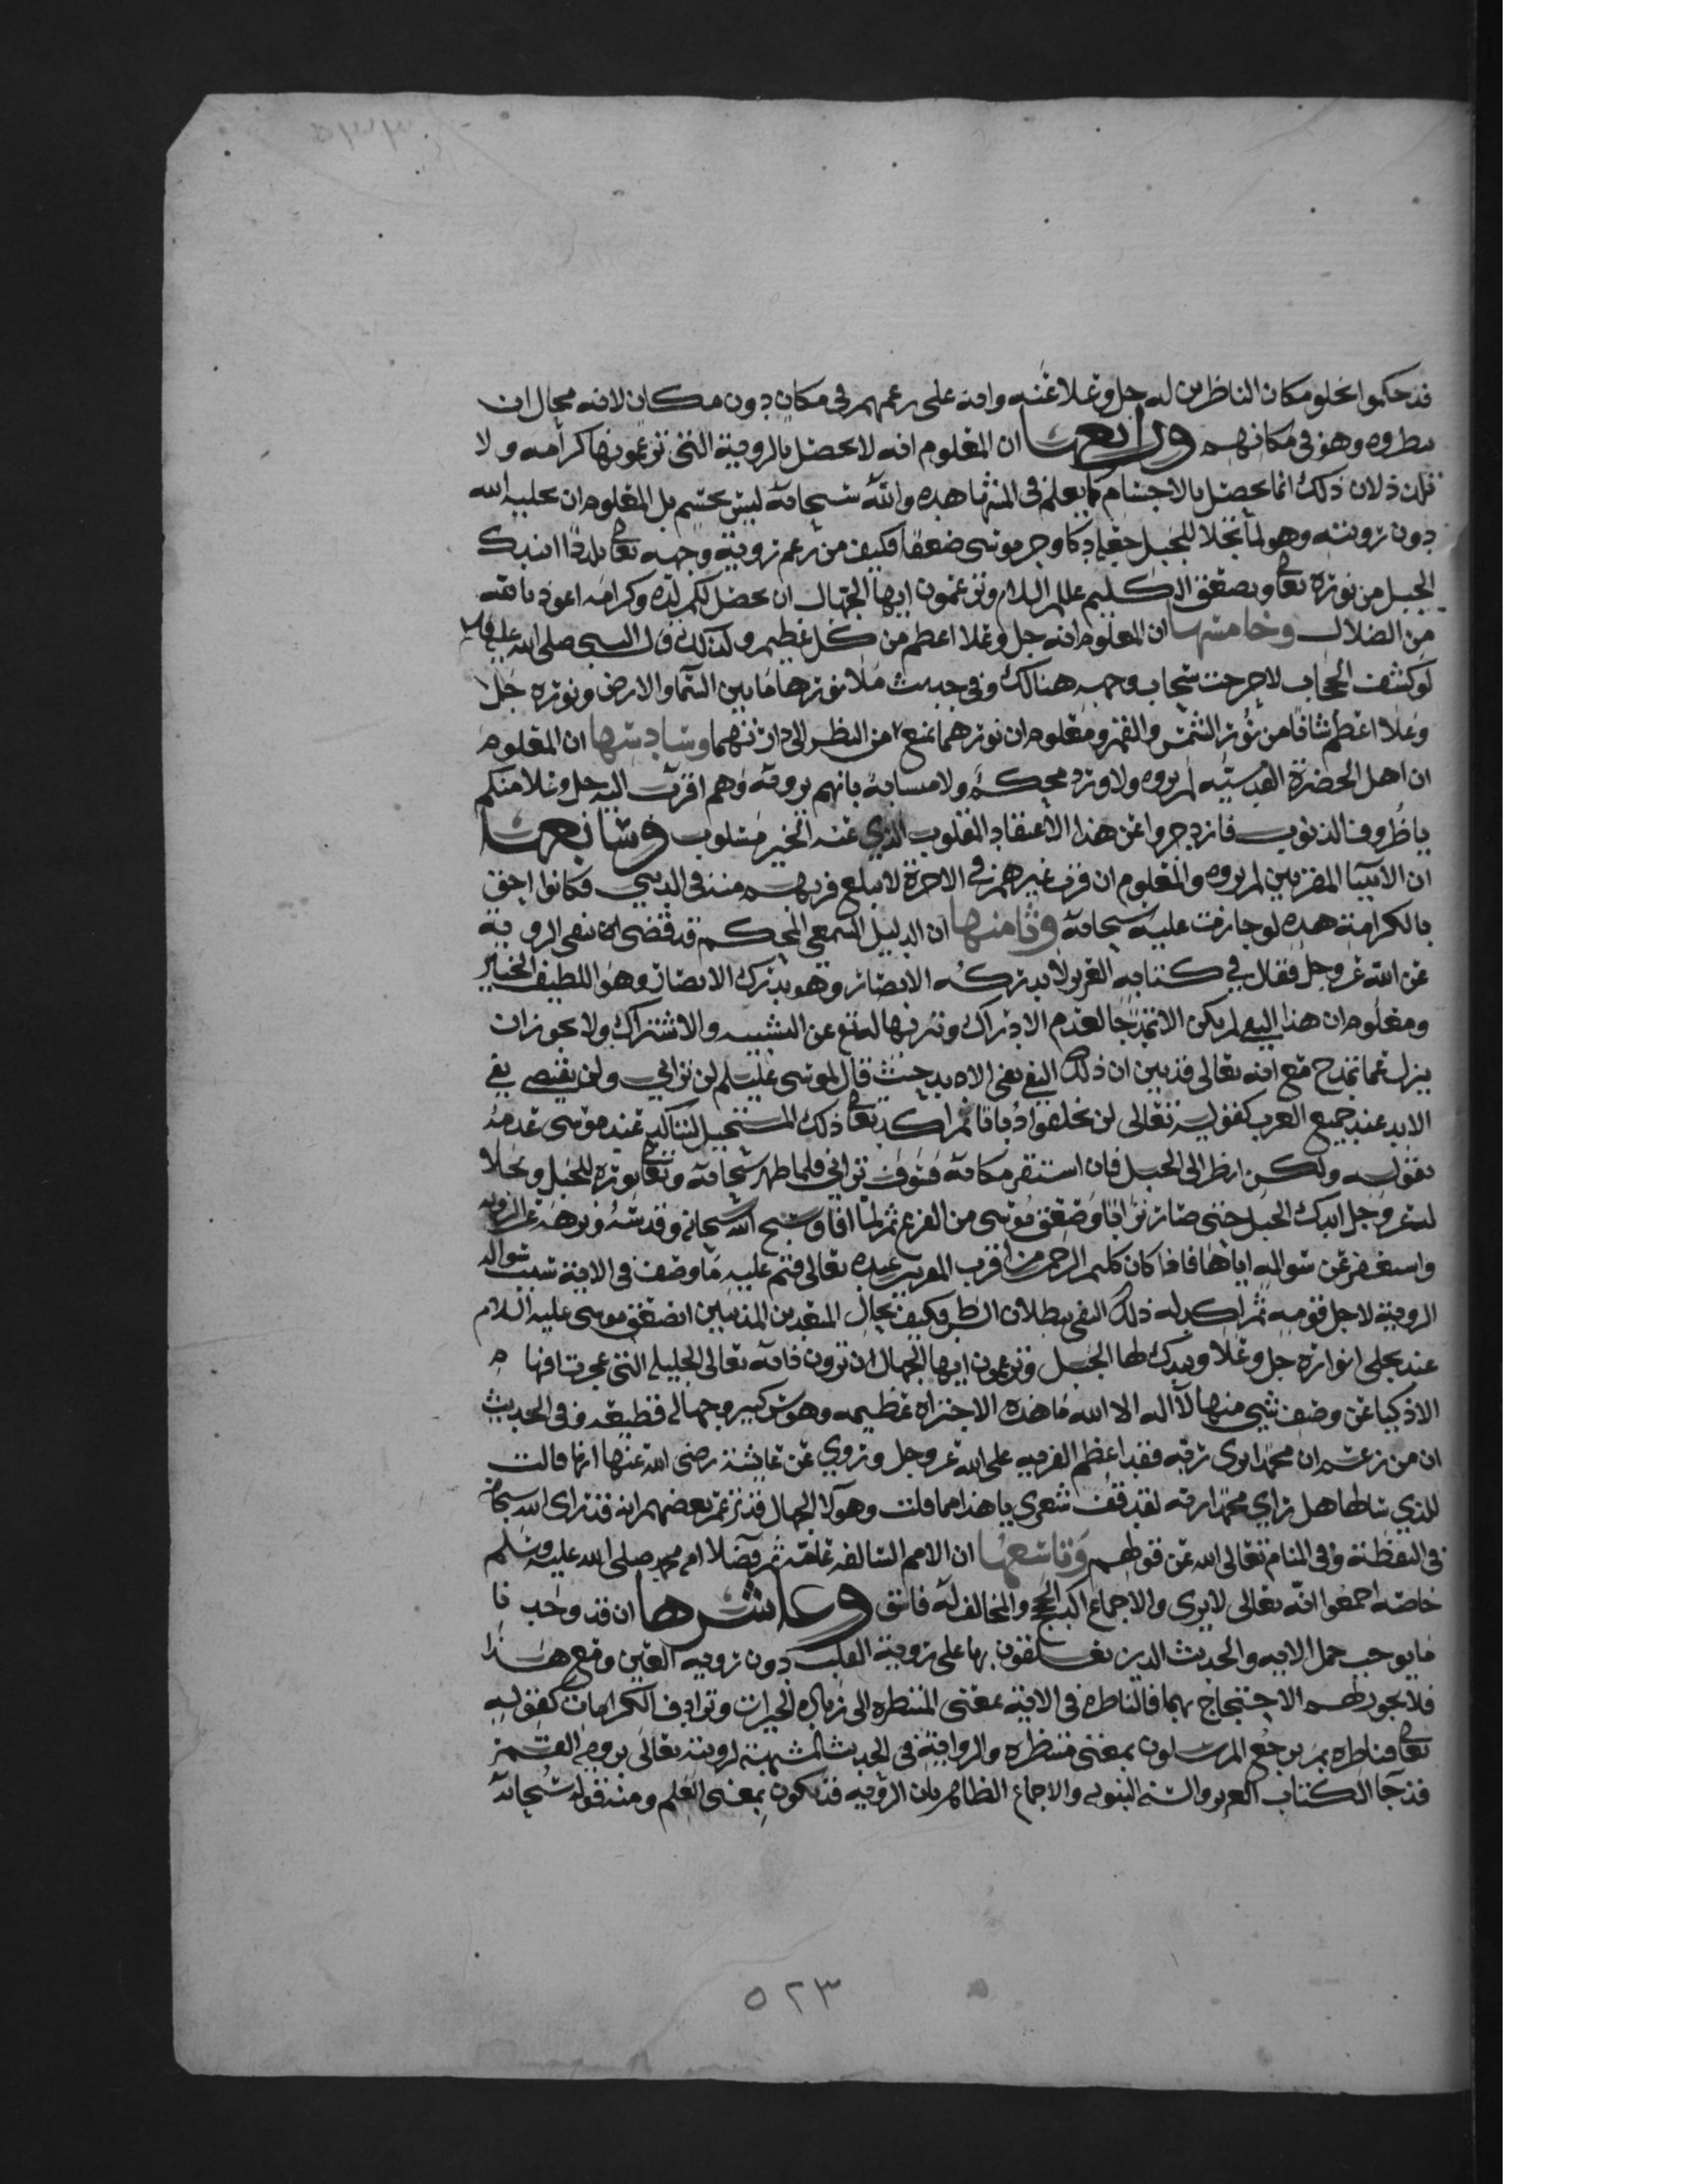 قد حكموا بخلو مكان الناظرين له جل وعلا عنه وانه على زعمهم في مكان دون مكان لانه محال ان
ينظروه وهو في مكانهم ورابعها ان المعلوم انه لا يحصل بالروية التي تزعمونها كرامه ولا
تلذذ لان ذلك انما يحصل بالاجسام كما يعلم في المشاهده والله سبحانه ليس بجسم بل المعلوم ان
دون رويته وهو لما تجلا للجبل جعله دكا وخر موسى صعقا فكيف من زعم روية وجهه تعالى اندك
الجبل من نوره تعالى وصعق الكليم عليه السلام وتزعمون ايها الجهال ان يحصل لكم لذه وكرامه اعوذ بالله
من الضلال وخامسها ان المعلوم انه جل وعلا اعظم من كل عظيم ولذلك قال النبي صلى الله عليه
لو كشف الحجاب لاحرقت سبحات وجهه هنالك وفي حديث ملا نورها ما بين السما والارض ونوره جل
وعلا اعظم شانا من نور الشمس والقمر ومعلوم ان نورهما يمنع من النظر الى ذاتهما وسادسها ان المعلوم
ان اهل الحضرة القدسيه لم يروه ولا ورد محكم ولا متشابه بانهم يرونه وهم اقرب اليه جل وعلا منكم
يا ظروف الذنوب فازدجروا عن هذا الاعتقاد المقلوب الذي عنه الخير مسلوب وسابعها
ان الانبيا المقربين لم يروه والمعلوم ان قرب غيرهم في الاخرة لا يبلغ قربهم منه في الدنيا فكانوا احق
بالكرامة هذه لو جازت عليه سبحانه وثامنها ان الدليل السمعي المحكم قد قضى بنفي الروية
عن الله عز وجل فقال في كتابه العزيز لا تدركه الابصار وهو يدرك الابصار وهو اللطيف الخبير
ومعلوم ان هذا النفي لم يكن الا تمدحا لعدم الادراك وتنزيها له تع عن التشبيه والاشتراك ولا يجوز ان
يزل عما تمدح مع انه تعالى قد بين ان ذلك النفي نفي الابد حيث قال لموسى عليه السلم لن تراني ولن يقتضي نفي
الابد عند جميع العرب كقوله تعالى لن يخلقوا ذبابا ثم اكد تعالى ذلك المستحيل لتاكد عند موسى عدمه
بقوله ولكن انظر الى الجبل فان استقر مكانه فسوف تراني فلما ظهر سبحانه وتعالى بنوره للجبل وتجلا
له عز وجل اندك الجبل حتى صار ترابا وصعق موسى من الفزع ثم لما افاق سبح الله سبحانه وقدسه ونزهه عن الروية
واستغفر عن سواله اياها فاذا كان كليم الرحمن من اقرب المقربين عنده تعالى فتم عليه ما وصف في الاية بسبب سواله
الروية لاجل قومه ثم اكد له ذلك النفي ببطلان النظر فكيف بحال المبعدين المذنبين اصعق موسى عليه السلام
عند تجلي انواره جل وعلا ويدك لها الجبل وتزعمون ايها الجهال ان ترون ذاته تعالى الجليله التي عجزت افهام
الاذكيا عن وصف شي منها لا اله الا الله ما هذه الا جراه عظيمه وهوس كبير وجهاله فظيعه وفي الحديث
ان من زعم ان محمدا راى ربه فقد اعظم الفريه على الله عز وجل وروي عن عايشة رضي الله عنها انها قالت
للذي سالها هل راى محمدا ربه لقد قف شعري يا هذا مما قلت وهولا الجهال قد زعم بعضهم انه قد راى الله سبحانه
في اليقظة وفي المنام تعالى الله عن قولهم وتاسعها ان الامم السالفه عامه ثم فضلا ام محمد صلى الله عليه وسلم
خاصه اجمعوا انه تعالى لا يرى والاجماع اكبر الحجج والمخالف له فاسق وعاشرها ان قد وجب
ما يوجب حمل الايه والحديث الذين يتعلقون بها على روية القلب دون روية العين ومع هذا
فلا يجوز لهم الاحتجاج بهما فالناظره في الاية بمعنى المنتظره الى زيادة الخيرات وترادف الكرامات كقوله
تعالى فناظره بم يرجع المرسلون بمعنى منتظره والرواية في الحديث المشبهة لرويته تعالى بروية القمر
قد جا الكتاب العزيز والسنه النبويه والاجماع الظاهر بان الروية قد تكون بمعنى العلم ومنه قوله سبحانه
٥٢٣